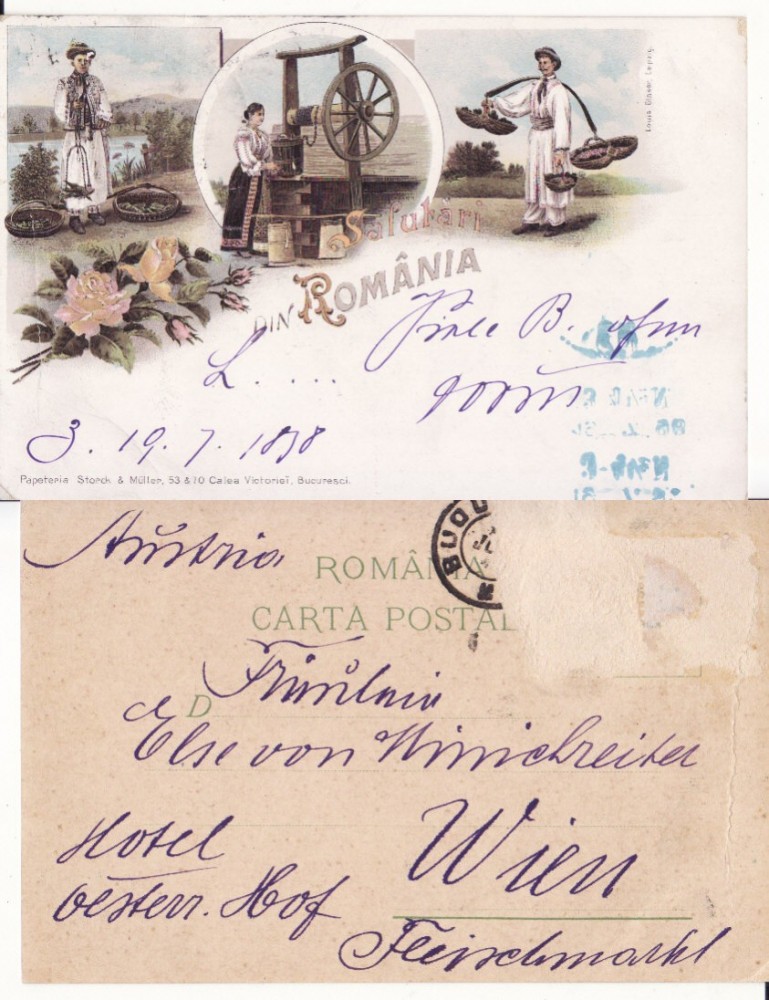 Louis Glaser, Leipzig.
Salutări
DIN ROMÂNIA
B.
L. ....
3. 19. 7. 1898
Papeteria Storck & Müller, 53 & 10 Calea Victoriei, Bucuresci.
Austria
BUCU
ROMÂNIA
CARTA POSTAL
D
Fräulein
Else von
Hotel
Wien
Österr. Hof
Fleischmarkt